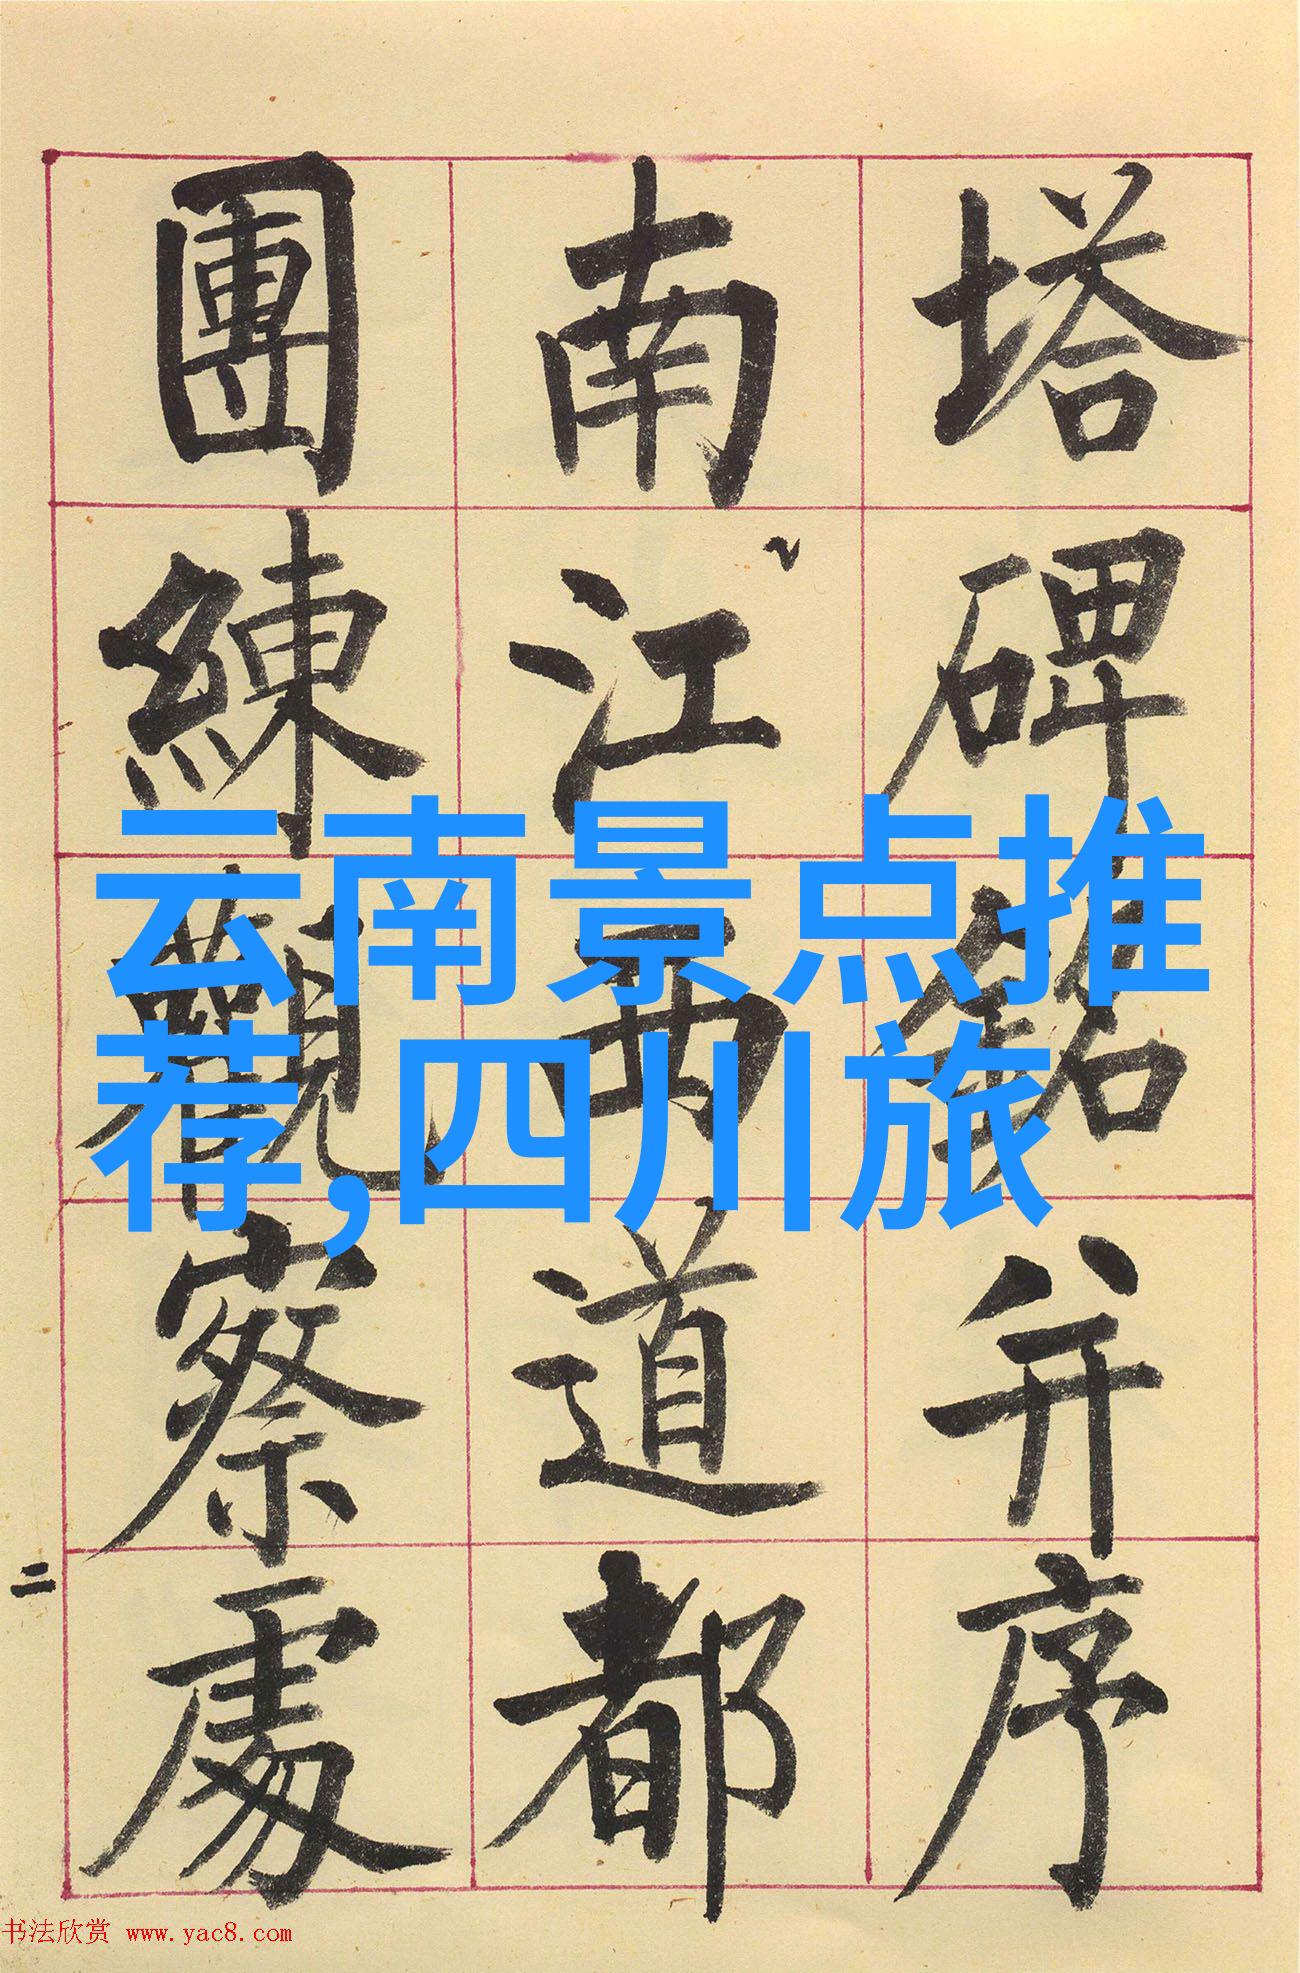 塔碑銘并序
南江西道都
團練觀察處
二
云南景点推
荐,四川旅
书法欣赏 www.yac8.com